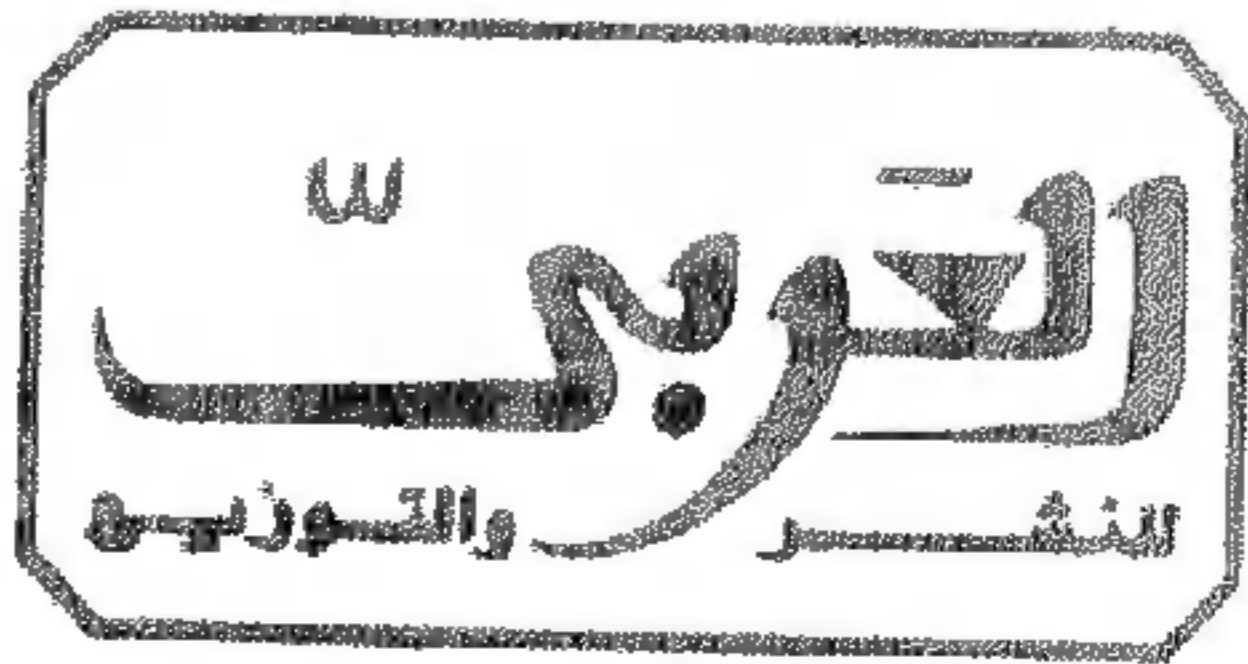 العَربيّ
للنشر والتوزيع